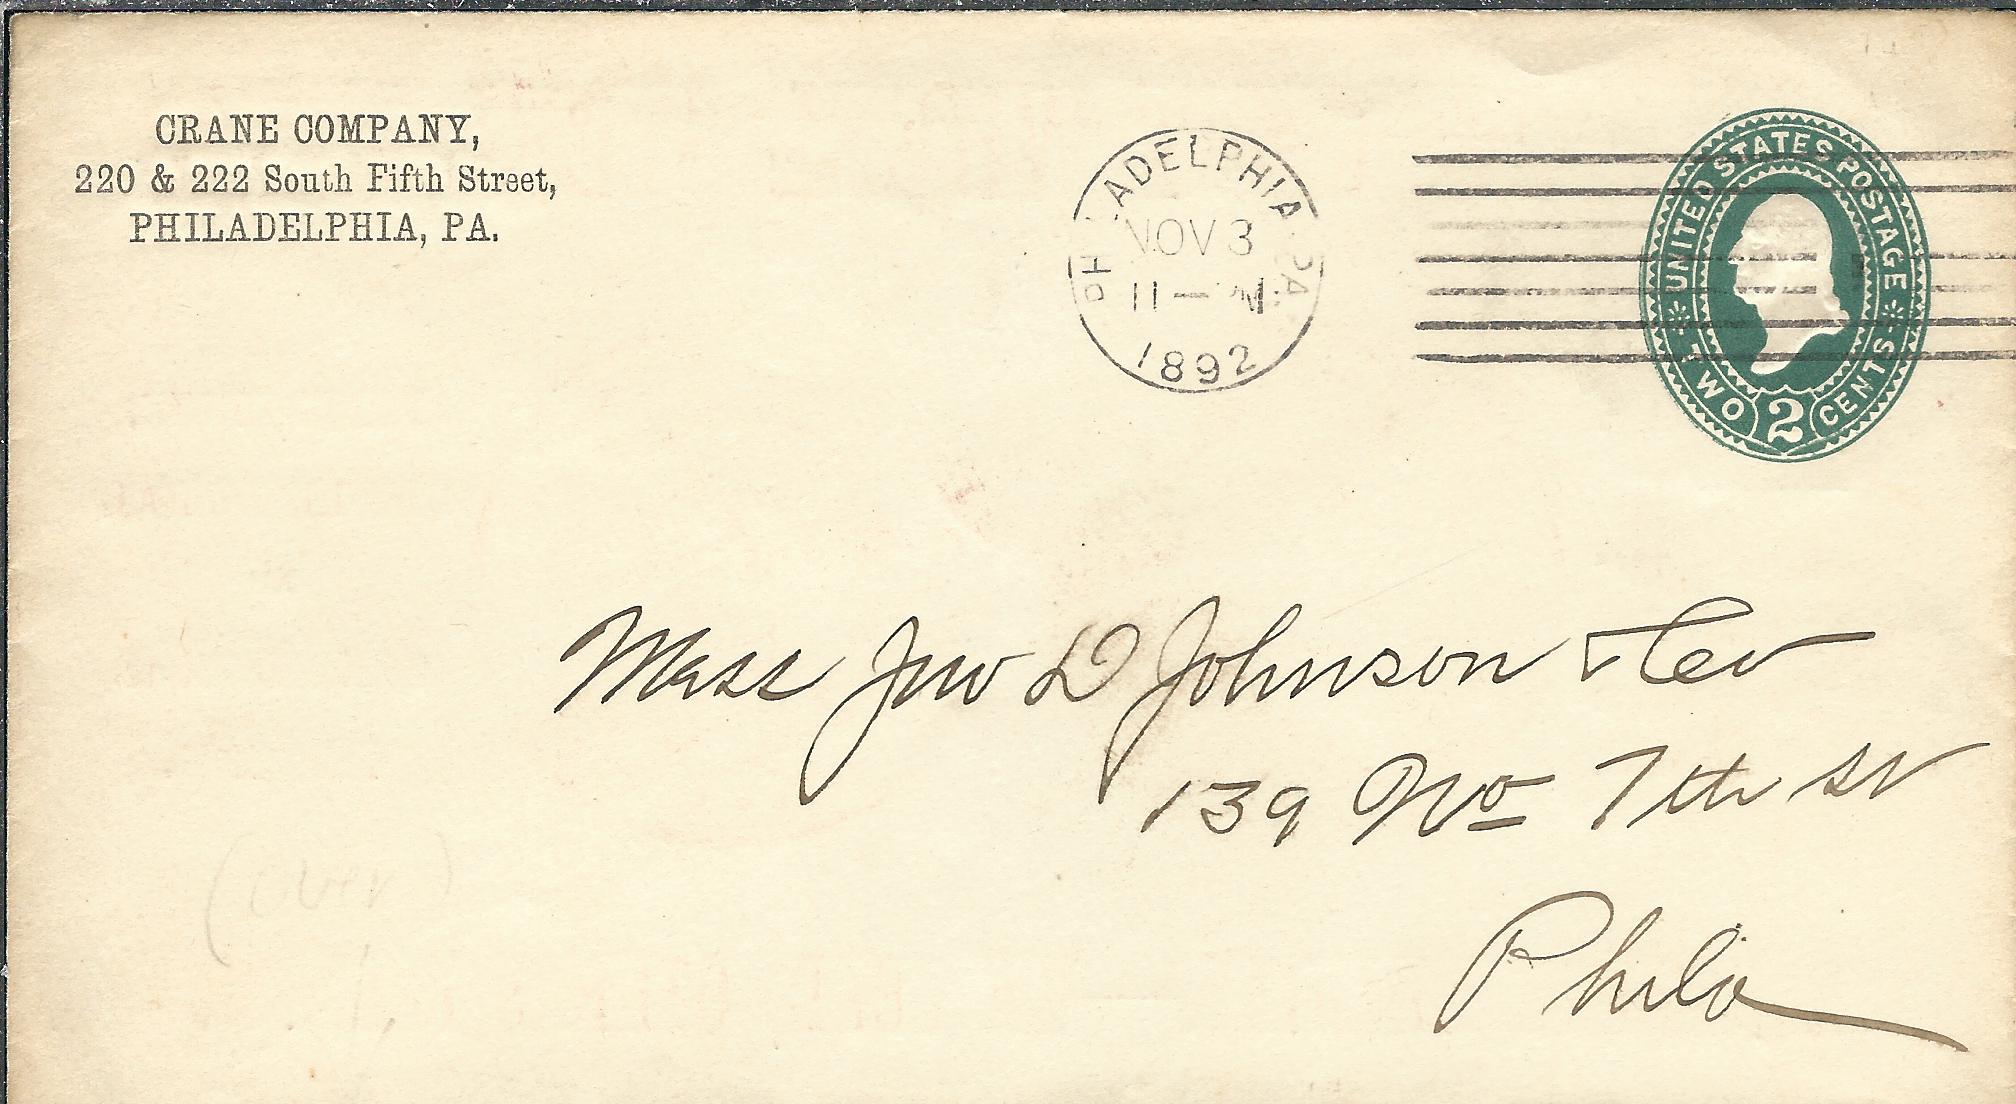 CRANE COMPANY,
220 & 222 South Fifth Street,
PHILADELPHIA, PA.
PHILADELPHIA PA
NOV 3
11 — M
1892
UNITED STATES POSTAGE
TWO 2 CENTS
Mess Jno D Johnson & Co
139 No 7th St
Phila
(over)